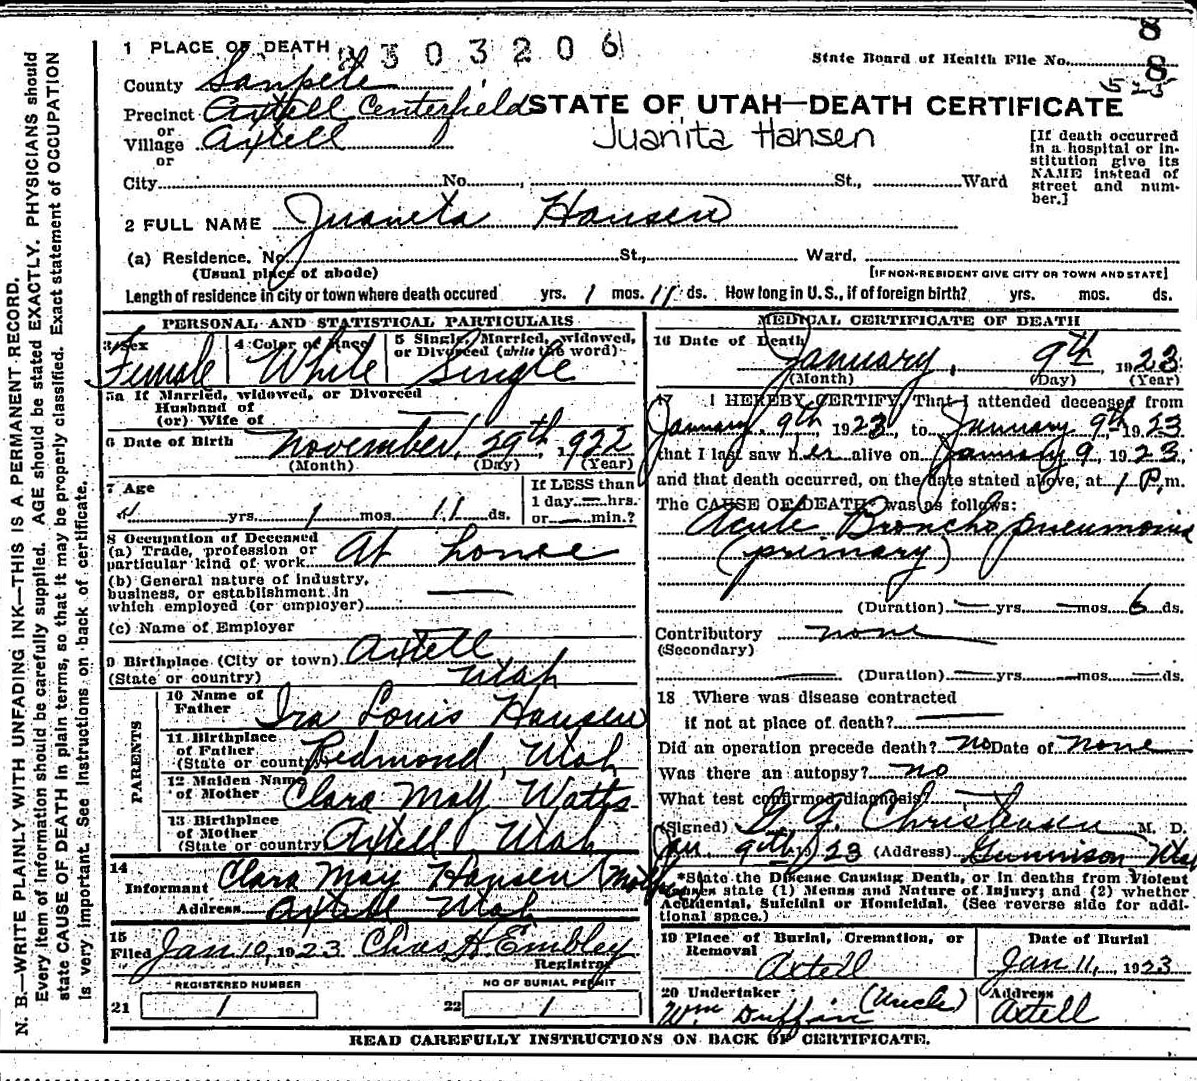 8
1 PLACE OF DEATH 2303206
State Board of Health File No. 8
525
County Sanpete
Precinct Axtell Centerfield STATE OF UTAH—DEATH CERTIFICATE
or
Village Axtell Juanita Hansen
or
[If death occurred in a hospital or institution give its NAME instead of street and number.]
City No. , St., Ward
2 FULL NAME Juaneta Hansen
(a) Residence. No. St., Ward.
(Usual place of abode) [IF NON-RESIDENT GIVE CITY OR TOWN AND STATE]
Length of residence in city or town where death occured yrs. 1 mos. 11 ds. How long in U.S., if of foreign birth? yrs. mos. ds.
PERSONAL AND STATISTICAL PARTICULARS
3 Sex 4 Color or Race 5 Single, Married, widowed, or Divorced (write the word)
Female White Single
5a If Married, widowed, or Divorced
Husband of
(or) Wife of —
6 Date of Birth November, 29th, 1922
(Month) (Day) (Year)
7 Age If LESS than
yrs. 1 mos. 11 ds. 1 day — hrs.
or — min.?
8 Occupation of Deceased
(a) Trade, profession or
particular kind of work At home
(b) General nature of industry,
business, or establishment in
which employed (or employer) —
(c) Name of Employer
9 Birthplace (City or town) Axtell
(State or country) Utah
PARENTS
10 Name of Father Ira Louis Hansen
11 Birthplace of Father (State or country) Redmond, Utah
12 Maiden Name of Mother Clara May Watts
13 Birthplace of Mother (State or country) Axtell, Utah
14
Informant Clara May Hansen
Address Axtell Utah
15
Filed Jan 10, 1923 Chas H. Embley
Registrar
REGISTERED NUMBER NO OF BURIAL PERMIT
21 1 22 1
MEDICAL CERTIFICATE OF DEATH
16 Date of Death
January, 9th, 1923
(Month) (Day) (Year)
17 I HEREBY CERTIFY, That I attended deceased from
January 9th 1923, to January 9th 1923
that I last saw her alive on January 9, 1923,
and that death occurred, on the date stated above, at 1 P.m.
The CAUSE OF DEATH* was as follows:
Acute Broncho pneumonia
(primary)
(Duration) — yrs. — mos. 6 ds.
Contributory none
(Secondary)
(Duration) — yrs. — mos. — ds.
18 Where was disease contracted
if not at place of death? —
Did an operation precede death? no Date of none
Was there an autopsy? no
What test confirmed diagnosis? —
(Signed) Christensen M. D.
Jan. 9th, 1923 (Address) Gunnison Utah
*State the Disease Causing Death, or in deaths from Violent
Causes state (1) Means and Nature of Injury; and (2) whether
Accidental, Suicidal or Homicidal. (See reverse side for additional space.)
19 Place of Burial, Cremation, or Removal Date of Burial
Axtell Jan 11, 1923
20 Undertaker (Uncle) Address
Wm Duffin Axtell
READ CAREFULLY INSTRUCTIONS ON BACK OF CERTIFICATE.
N. B.—WRITE PLAINLY WITH UNFADING INK—THIS IS A PERMANENT RECORD.
Every item of information should be carefully supplied. AGE should be stated EXACTLY. PHYSICIANS should
state CAUSE OF DEATH in plain terms, so that it may be properly classified. Exact statement of OCCUPATION
is very important. See instructions on back of certificate.